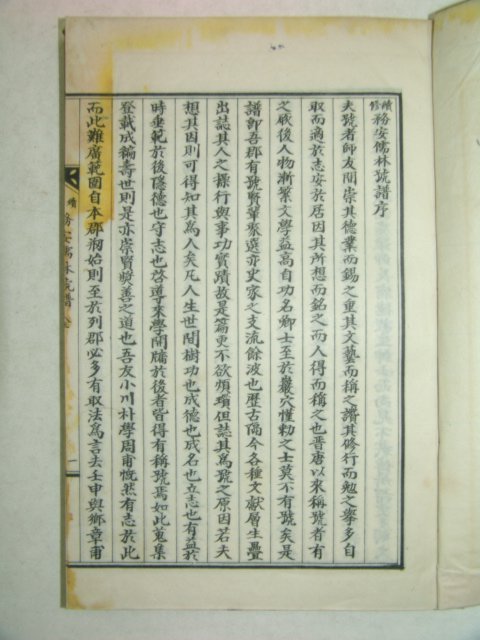 續修務安儒林號譜序
夫號者師友間崇其德業而錫之重其文藝而稱之讚其修行而勉之擧多自
取而適於志安於居因其所想而銘之而人得而稱之也晋唐以來稱號者有
之成後人物漸繁文學益高自功名卿士至於巖穴慬勅之士莫不有號矣是
譜卽吾郡有號賢軰家選亦史家之支流餘波也歷古隔今各種文献層生疊
出誌其人之操行與事功實蹟故是篇更不欲煩瑣但誌其爲號之原因若夫
想其因則可得知其爲人矣凡人生世間樹功也成德也成名也立志也有益於
時垂範於後隱德也守志也啓導來學開牖於後者皆得有稱號焉如此蒐集
登載成編壽世則是亦崇賢奬善之道也吾友小川朴學周甫慨然有志於此
而此難廣範圍自本郡剏始則至於列郡必多有取法爲言去壬申與鄉章甫
續務安儒林號譜 全
一